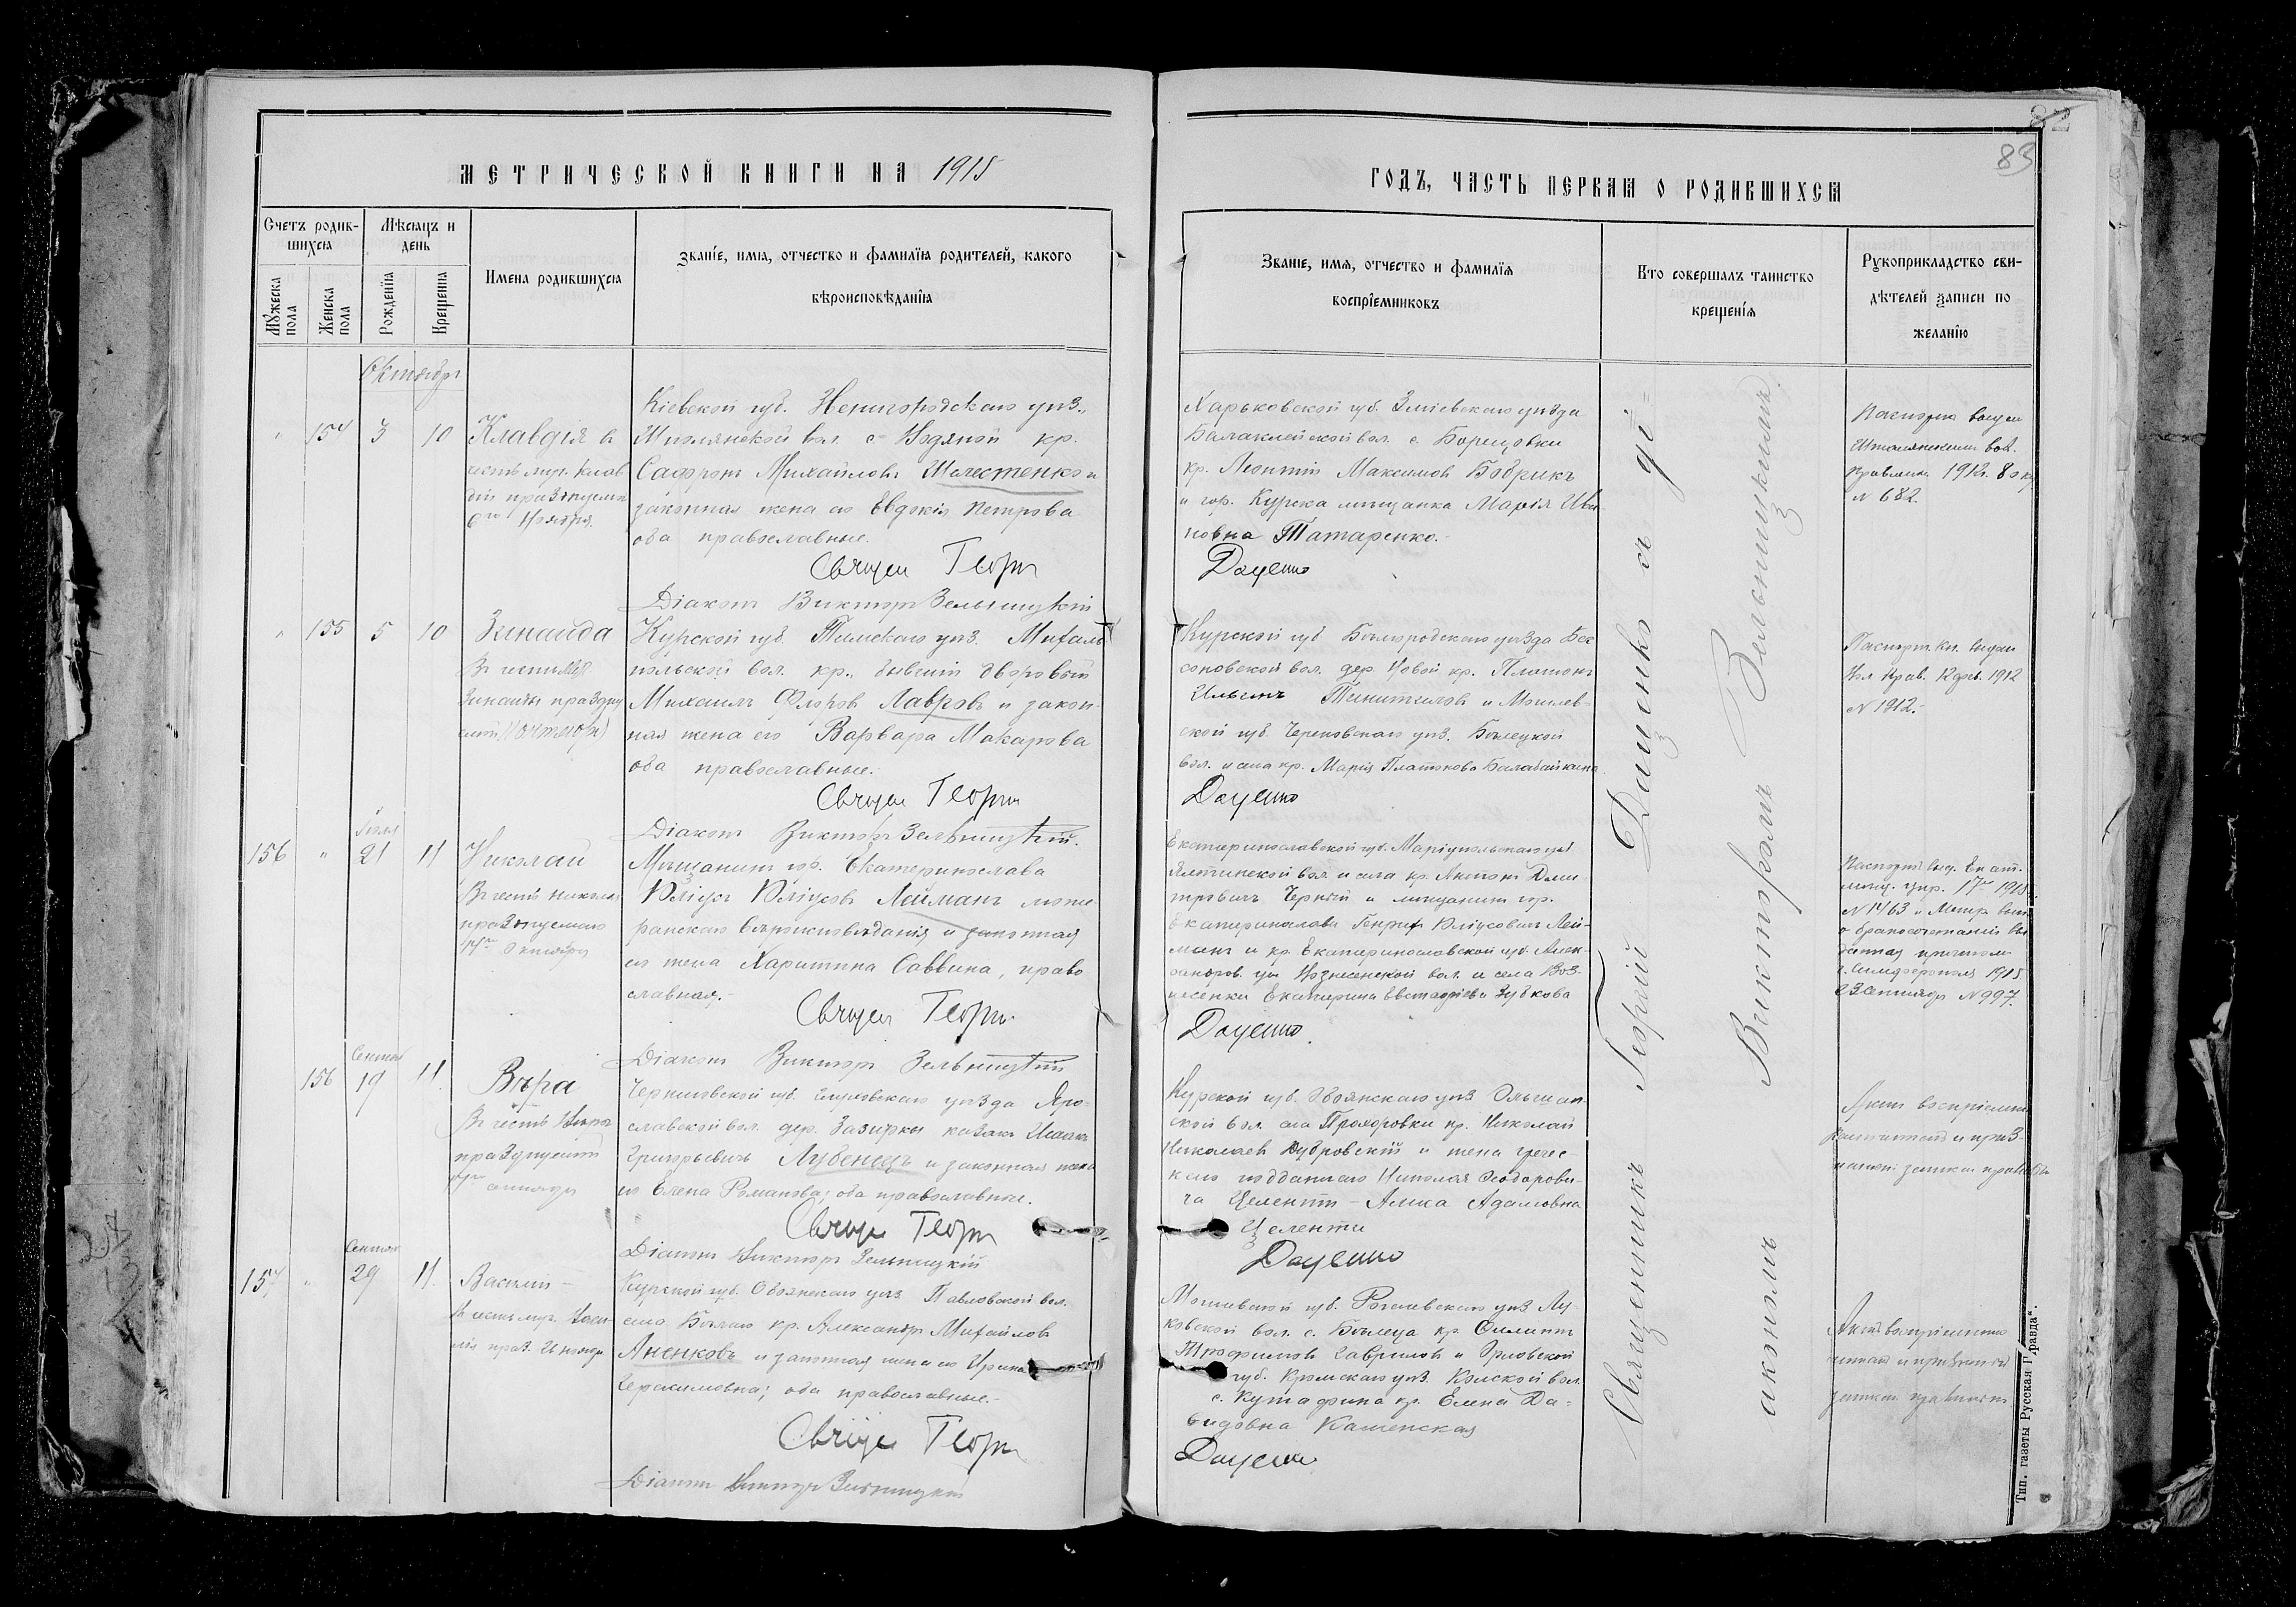 82
83
МЕТРИЧЕСКОЙ КНИГИ НА 1915
ГОДЪ, ЧАСТЬ ПЕРВАЯ О РОДИВШИХСЯ
Счетъ родив-
шихся
Мѣсяцъ и
день
Мужеска
пола
Женска
пола
Рожденія
Крещенія
Имена родившихся
Званіе, имя, отчество и фамилія родителей, какого
вѣроисповѣданія
Званіе, имя, отчество и фамилія
воспріемниковъ
Кто совершалъ таинство
крещенія
Рукоприкладство сви-
дѣтелей записи по
желанію
Октябрь
" 154 3 10
Клавдія въ
честь муч. Клав
діи празднуемой
6го Ноября.
Кіевской губ. Звенигородскаго уѣз.,
вол. с. Водяной кр.
Михайловъ Шелестенко и
законная жена его Евдокія Петрова
оба православные.
Священ Георгій
Діаконъ Викторъ Зельницкій
Харьковской губ. Зміевскаго уѣзда
Балаклейской вол. с. Борщовки
кр. Леонтій Максимов Бобрикъ
и гор. Курска мѣщанка Марія Ива
новна Татаренко.
Даценко
Паспорта выдан
вол.
Правлен. 1912г.
N 682
" 155 5 10
Зинаида
Въ честь Муч.
Зинаиды праздну
Курской губ. Тимскаго уѣз. Михаль
польской вол. кр., бывшій дворовый
Михаилъ Флоровъ Лавровъ и закон-
ная жена его Варвара Макарова
оба православные.
Священ Георгій
Діаконъ Викторъ Зельницкій.
Курской губ. Бѣлгородскаго уѣзда Бес
соновской вол. дер. Новой кр. Платонъ
Ильинъ и Могилев-
ской губ. Чериковскаго уѣз. Бѣлецкой
вол. и села кр. Марія Платонова Балабайкина.
Даценко
Паспорт. кн. выдан
Вол. Прав. 1912
N 1912.-
Іюля
156 " 21 11
Николай
Въ честь Николая
празднуемаго
Октября
Мѣщанинъ гор. Екатеринослава
Юліусъ Юліусовъ Лейманъ люте-
ранскаго вѣроисповѣданія и законная
его жена Харитина Саввина, право
славная.-
Священ Георгій
Діаконъ Викторъ Зельницкій
Екатеринославской губ. Маріупольскаго уѣз
Ялтинской вол. и села кр. Антонъ Дми-
тровичъ Черный и мѣщанинъ гор.
Екатеринослава Генрих Юліусовичъ Лей-
манъ и кр. Екатеринославской губ. Алек-
сандров. уѣз Вознесенской вол. и села Воз-
несенки Екатерина Евстафіева Зубкова
Даценко.
Паспортъ выд. Екат.
мѣщ. упр. 1915
N 1463 и Метр. вып.
о бракосочетаніи вы
данная причтом
г. Симферополя 1915
23 Сентября N 997.
Сентяб
156 19 11.
Вѣра
Въ честь Вѣры
празднуемой
Черниговской губ. Глуховскаго уѣзда Яро-
славской вол. дер. Зазирки казакъ Исаакъ
Григорьевичъ Лубенецъ и законная жена
его Елена Романова; оба православные.
Священ Георгій
Діаконъ Викторъ Зельницкій
Курской губ. Обоянскаго уѣз Ольшан-
ской вол. села Прохоровки кр. Николай
Николаев Дубровскій и жена грече-
скаго подданнаго Николая Феодорови-
ча Целенти - Алика Адамовна
Целенти
Даценко
Актъ воспріемни
Сентяб
157 " 29 11.
Василій -
Курской губ. Обоянскаго уѣз Павловской вол.
села Бѣлаго кр. Александръ Михайловъ
Аненковъ и законная жена его Ирина
Герасимовна; оба православные.-
Священ Георгій
Діаконъ Викторъ Зельницкій
Могилевской губ. Рогачевскаго уѣз Лу-
ковской вол. с. Бѣлица кр. Филиппъ
Трофимовъ Гавриловъ и Орловской
губ. Кромскаго уѣз. вол.
с. Кутафина кр. Елена Да-
видовна Каменская
Даценко
Священникъ Георгій Даценко съ ді-
акономъ Викторомъ Зельницкимъ.
Тип. газеты Русская Правда".